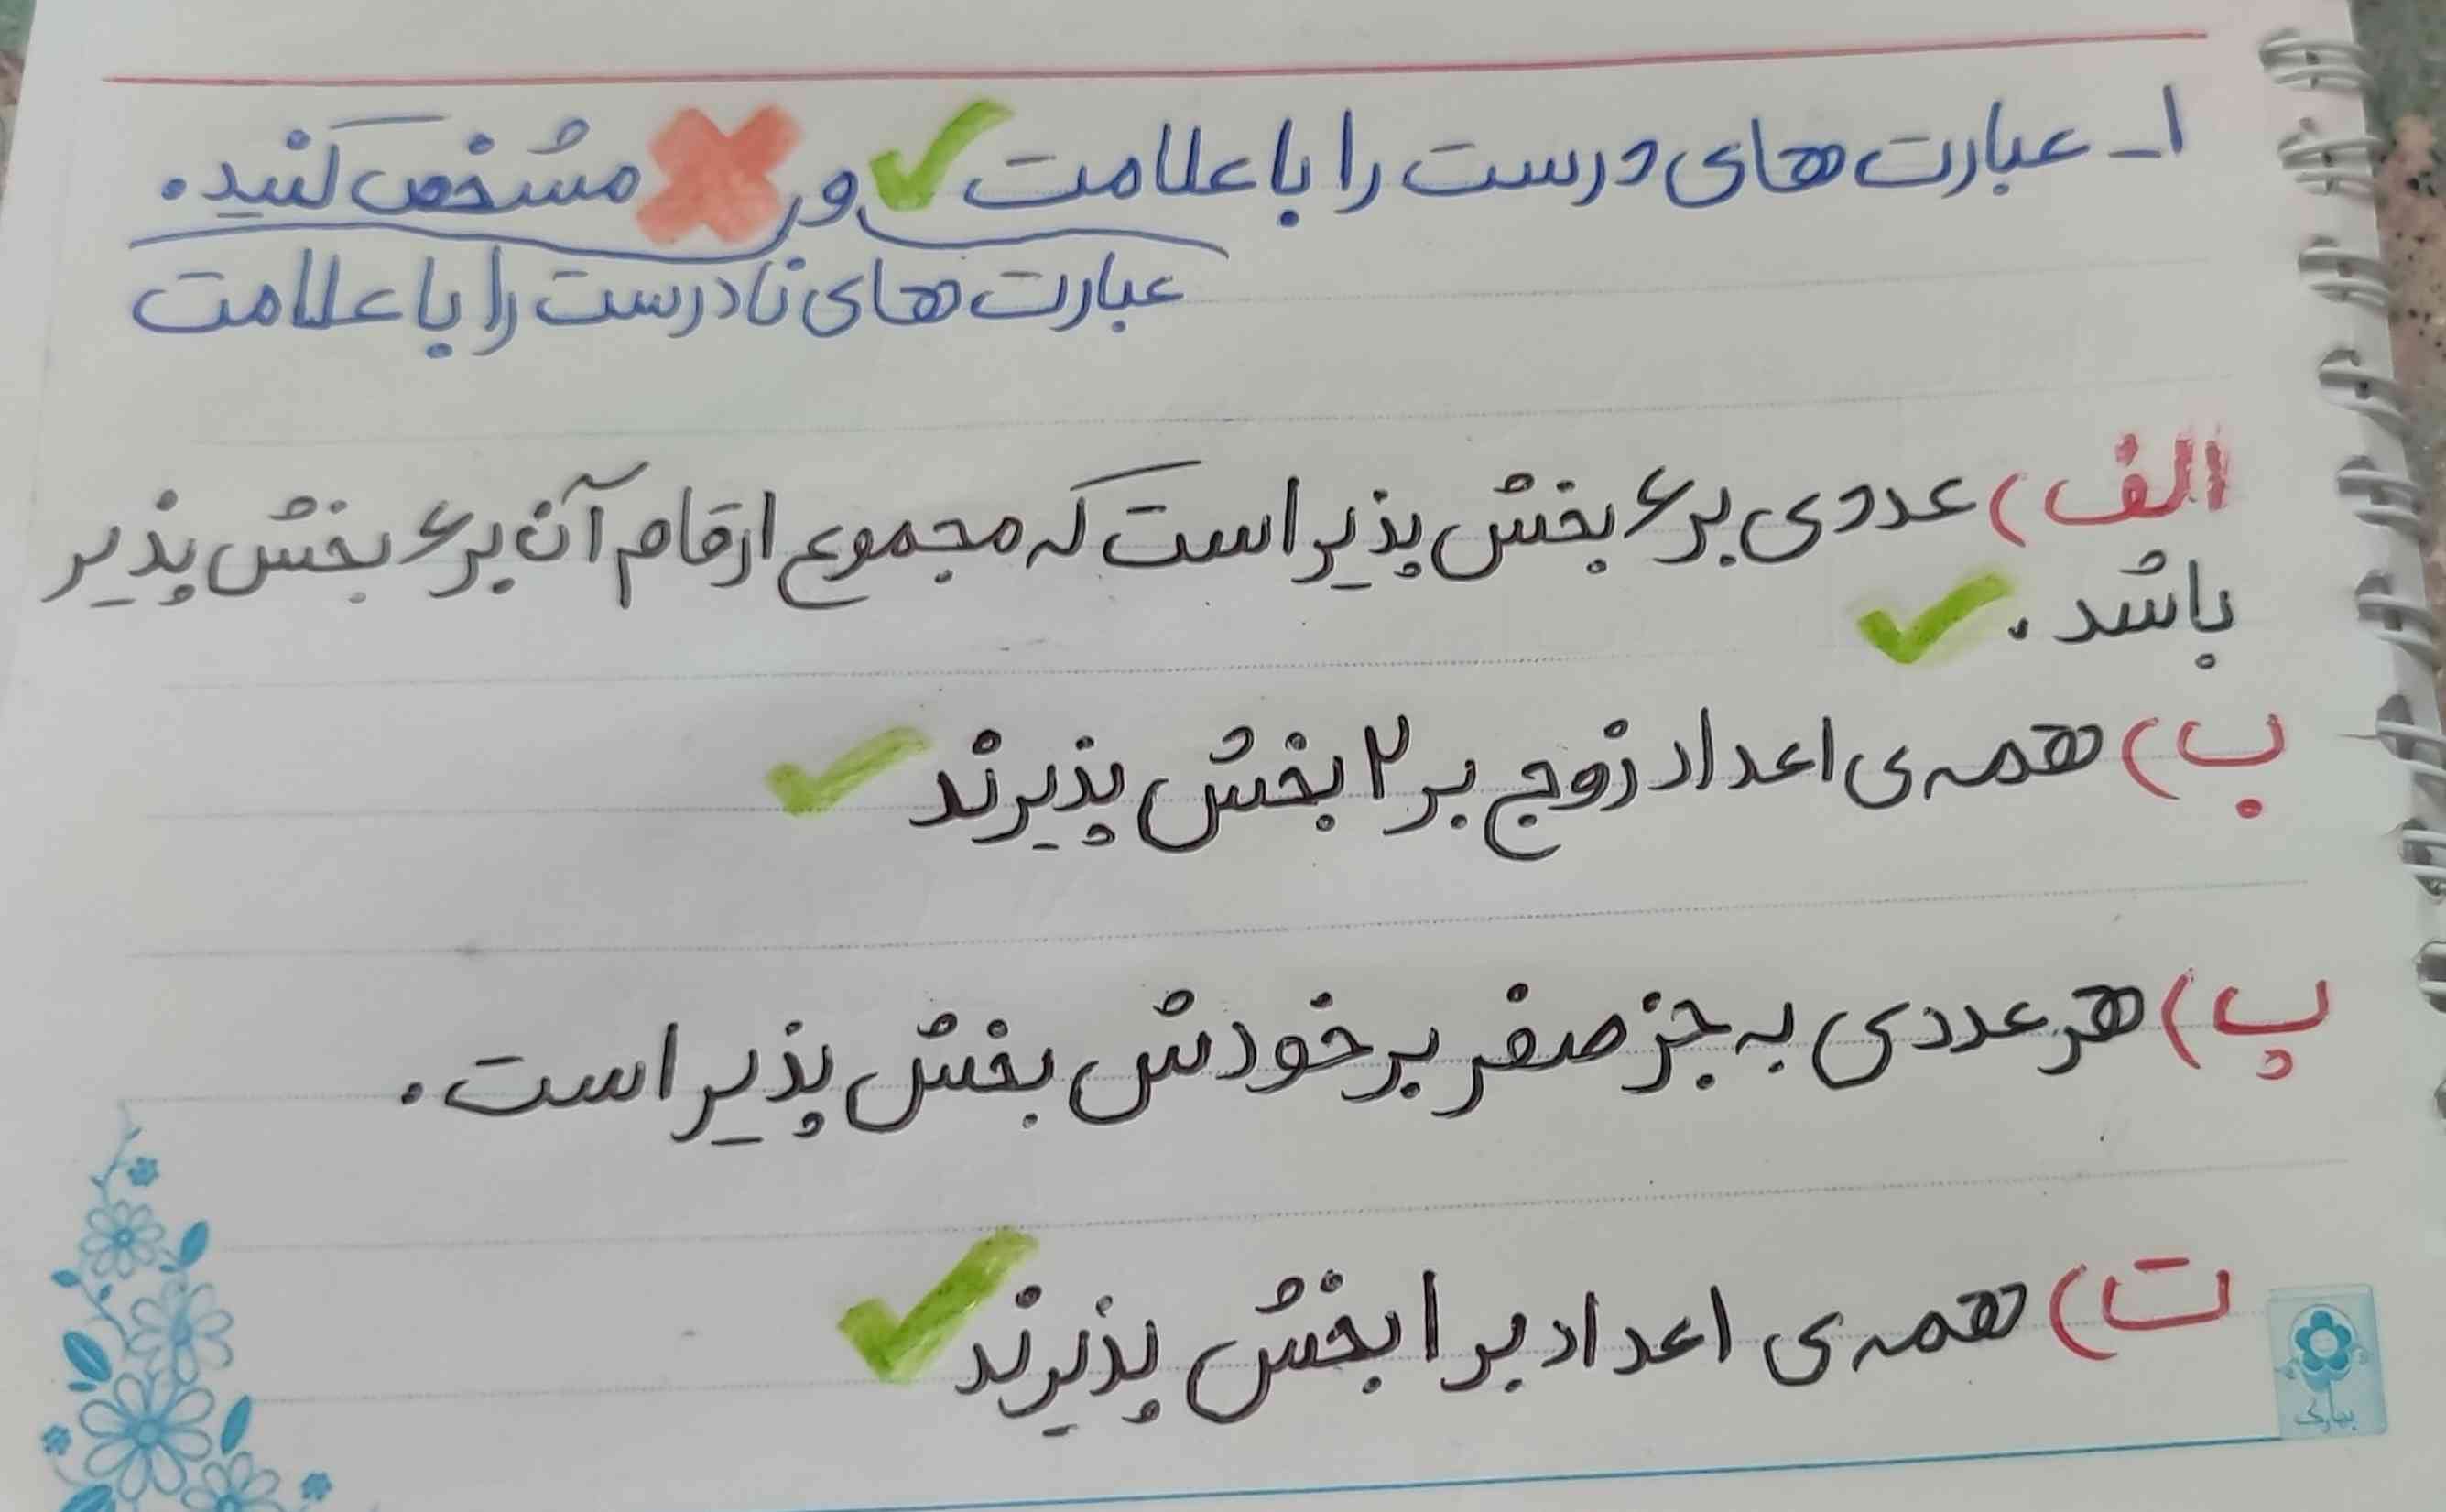 ۱- عبارت های درست را با علامت ✓ و ✗ مشخص کنید.
عبارت های نادرست را با علامت
الف) عددی بر ۶ بخش پذیر است که مجموع ارقام آن بر ۶ بخش پذیر
باشد. ✓
ب) همه ی اعداد زوج بر ۲ بخش پذیرند ✓
پ) هر عددی به جز صفر بر خودش بخش پذیر است.
ت) همه ی اعداد بر ۱ بخش پذیرند ✓
بهاری